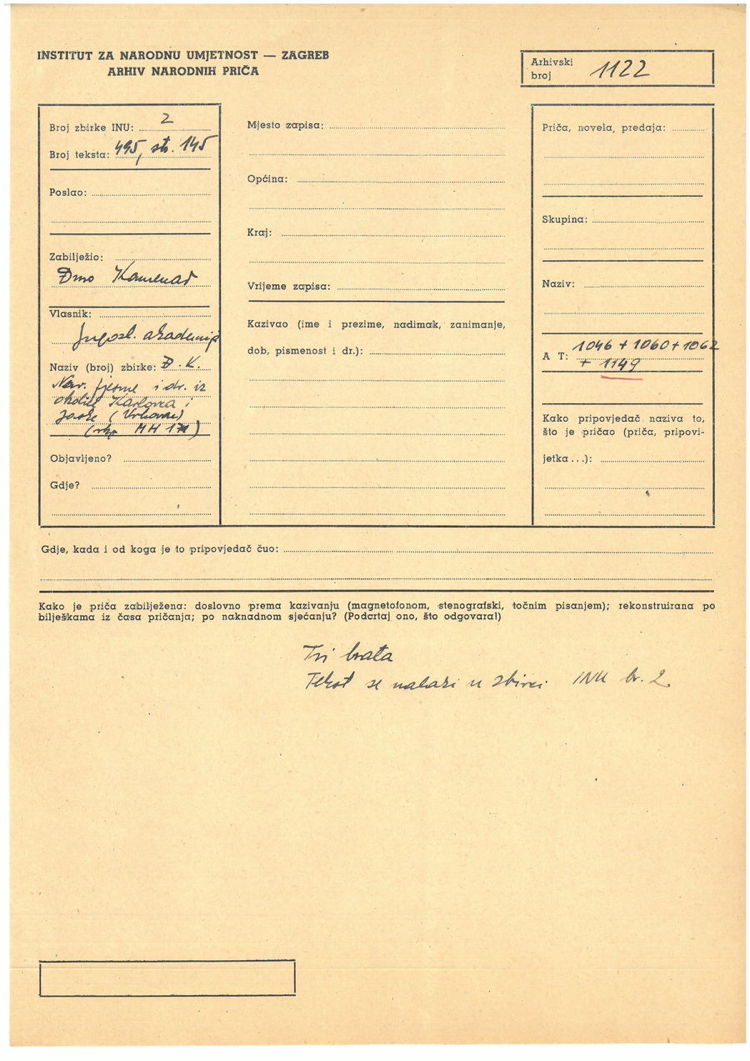 INSTITUT ZA NARODNU UMJETNOST — ZAGREB
ARHIV NARODNIH PRIČA
Arhivski
broj 1122
Broj zbirke INU: 2
Broj teksta: 495, str. 145
Poslao:
Zabilježio:
Đuro Kamenar
Vlasnik:
Jugosl. akademija
Naziv (broj) zbirke: Đ. K.
Nar. pjesme i dr. iz
okolice Karlovca i
(rkp MH 171)
Objavljeno?
Gdje?
Mjesto zapisa:
Općina:
Kraj:
Vrijeme zapisa:
Kazivao (ime i prezime, nadimak, zanimanje,
dob, pismenost i dr.):
Priča, novela, predaja:
Skupina:
Naziv:
A T: 1046 + 1060 + 1062
+ 1149
Kako pripovjedač naziva to,
što je pričao (priča, pripovi-
jetka...):
Gdje, kada i od koga je to pripovjedač čuo:
Kako je priča zabilježena: doslovno prema kazivanju (magnetofonom, stenografski, točnim pisanjem); rekonstruirana po
bilješkama iz časa pričanja; po naknadnom sjećanju? (Podcrtaj ono, što odgovara!)
Tri brata
Tekst se nalazi u zbirci INU br. 2